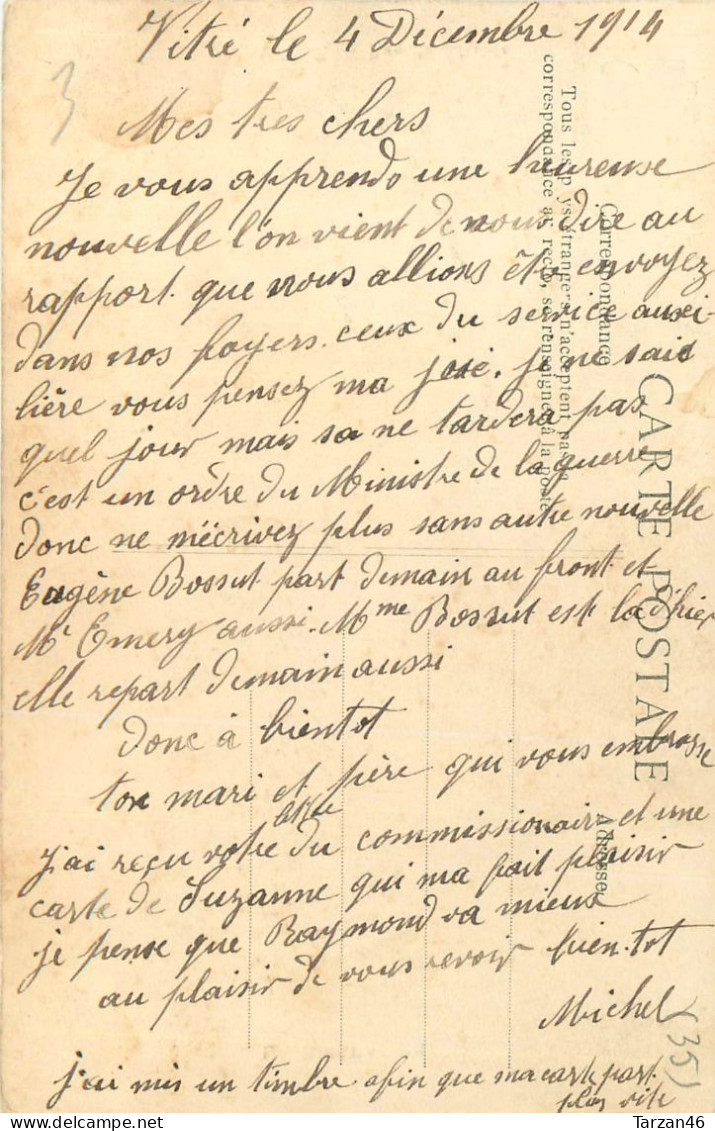 Vitré le 4 Décembre 1914
3
Mes tres chers
Je vous apprends une heureuse
nouvelle l'on vient de nous dire au
rapport que nous allions être envoyez
dans nos foyers ceux du service auxi-
lière vous pensez ma joie. je ne sais
quel jour mais sa ne tardera pas
c'est un ordre du Ministre de la guerre
donc ne m'écrivez plus sans autre nouvelle
Eugène Bossut part demain au front et
Mr Emery aussi. Mme Bossut est la d'hier
elle repart demain aussi
donc à bientot
ton mari et père qui vous embrasse
J'ai reçu votre lettre du commissionair et une
carte de Suzanne qui ma fait plaisir
je pense que Raymond va mieux
au plaisir de vous revoir bien tot
Michel
(35)
j'ai mis un timbre afin que ma carte part
plus vite
CARTE POSTALE
Correspondance
Adresse
Tous les pays étrangers n'acceptent pas la
correspondance au recto, se renseigner à la Poste
Tarzan46